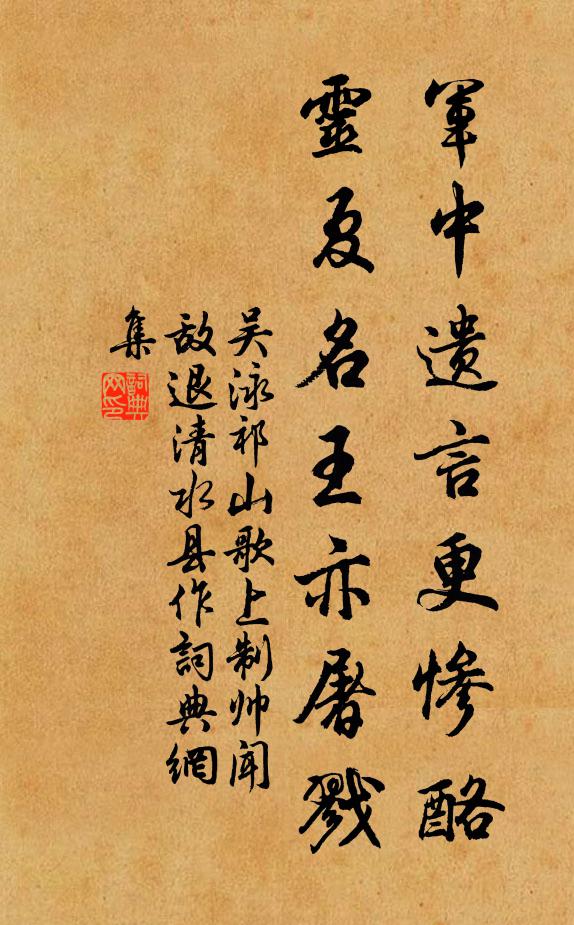 軍中遺言更慘酷
靈夏名王亦屠戮
吴泳祁山歌上制帅闻
敌退清水县作詞典網
集
詞典网印